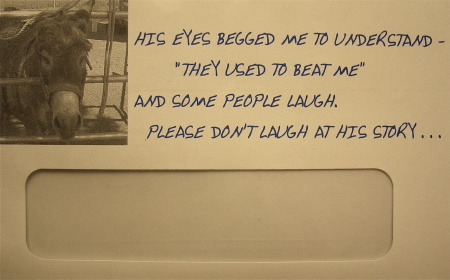 HIS EYES BEGGED ME TO UNDERSTAND -
"THEY USED TO BEAT ME"
AND SOME PEOPLE LAUGH.
PLEASE DON'T LAUGH AT HIS STORY . . .